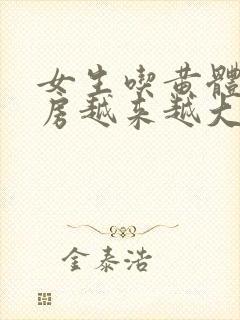 女生喫黃體
房越來越大
金泰浩